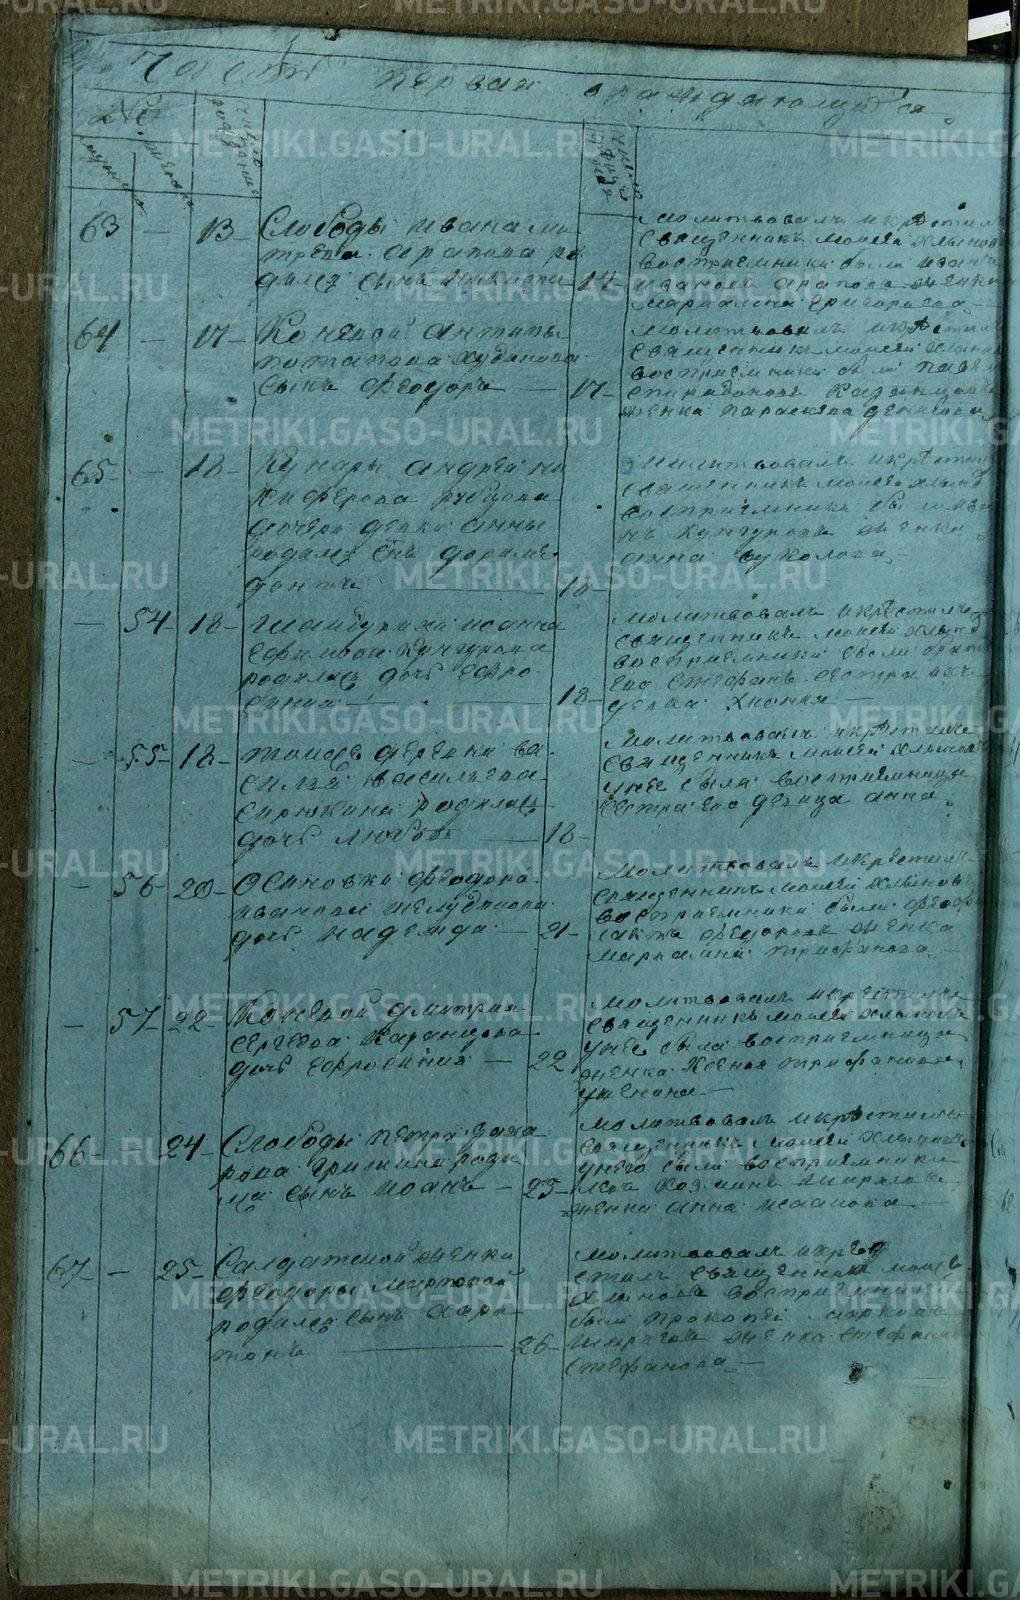 Часть первая о раждающихся
№
мужеска
женска
число рождения
число крещения
63 — 13 Слободы Ивана Ми-
трева Арапова ро
дился сынъ Никита — 14
молитвовалъ и крѣстилъ
священникъ Моисей Хлынов
восприемники были Иванъ
Ивановъ Арапова женка
Мариамна Григорьева —
64 — 17 Коневой Антипы
Потапова Худякова
сынъ Феодоръ — 17
молитвовалъ и крѣстилъ
священникъ Моисей Хлынов
восприемники были Павел
Спиридоновъ Казанцов
женка Параскева Денисова
65 — 18 Кунары Андрея Ни
киферова Рубцова
дочери девки Анны
родился сынъ Дориме-
донтъ — 18
молитвовалъ и крѣстил
священникъ Моисей Хлынов
восприемники были Ива
нъ Кунгуровъ женка
Анна Вуколова —
— 54 — 18 — Шайдурихи Иоанна
Ефимова Кунгурова
родилась дочь Ефро-
синия — 18 —
молитвовалъ и крѣстилъ
священникъ Моисей Хлынов
восприемники были братъ
его Стефанъ сестра их
девка Хиония —
— 55 — 18 — тоисе деревни Ва-
силья Васильева
Сирюкина родилась
дочь Любовь — 18
молитвовалъ и крѣстилъ
священникъ Моисей Хлыновъ
унее была восприемница
сестра его девица Анна.
— 56 — 20 — Осиновки Феодора
Иванова Желудкова
дочь Надежда — 21 —
молитвовалъ и крѣстилъ
священникъ Моисей Хлыновъ
восприемники были Феофи
лактъ Федоровъ женка
Мариамна Трифанова —
— 57 — 22 — Коневой Дмитрия
Сергеева Казанцова
дочь Ефросиния — 22
молитвовалъ и крѣстилъ
священникъ Моисей Хлыновъ
унее была восприемница
женка Ксения Трифанова
66 — 24 — Слободы Петра Заха
рова Гришина роди
лся сынъ Иоанъ — 25 —
молитвовалъ и крѣстилъ
священникъ Моисей Хлыновъ
унего были восприемники
Козмина
женка Анна Исакова —
67 — 25 — Салдатской женки
Феодоры Мартовой
родился сынъ Хари-
тонъ — 26 —
молитвовалъ и крѣ
стилъ священникъ Моисей
Хлыновъ восприемники
были Прокопей Марковъ
женка Стефанида
Стефанова —
METRIKI.GASO-URAL.RU